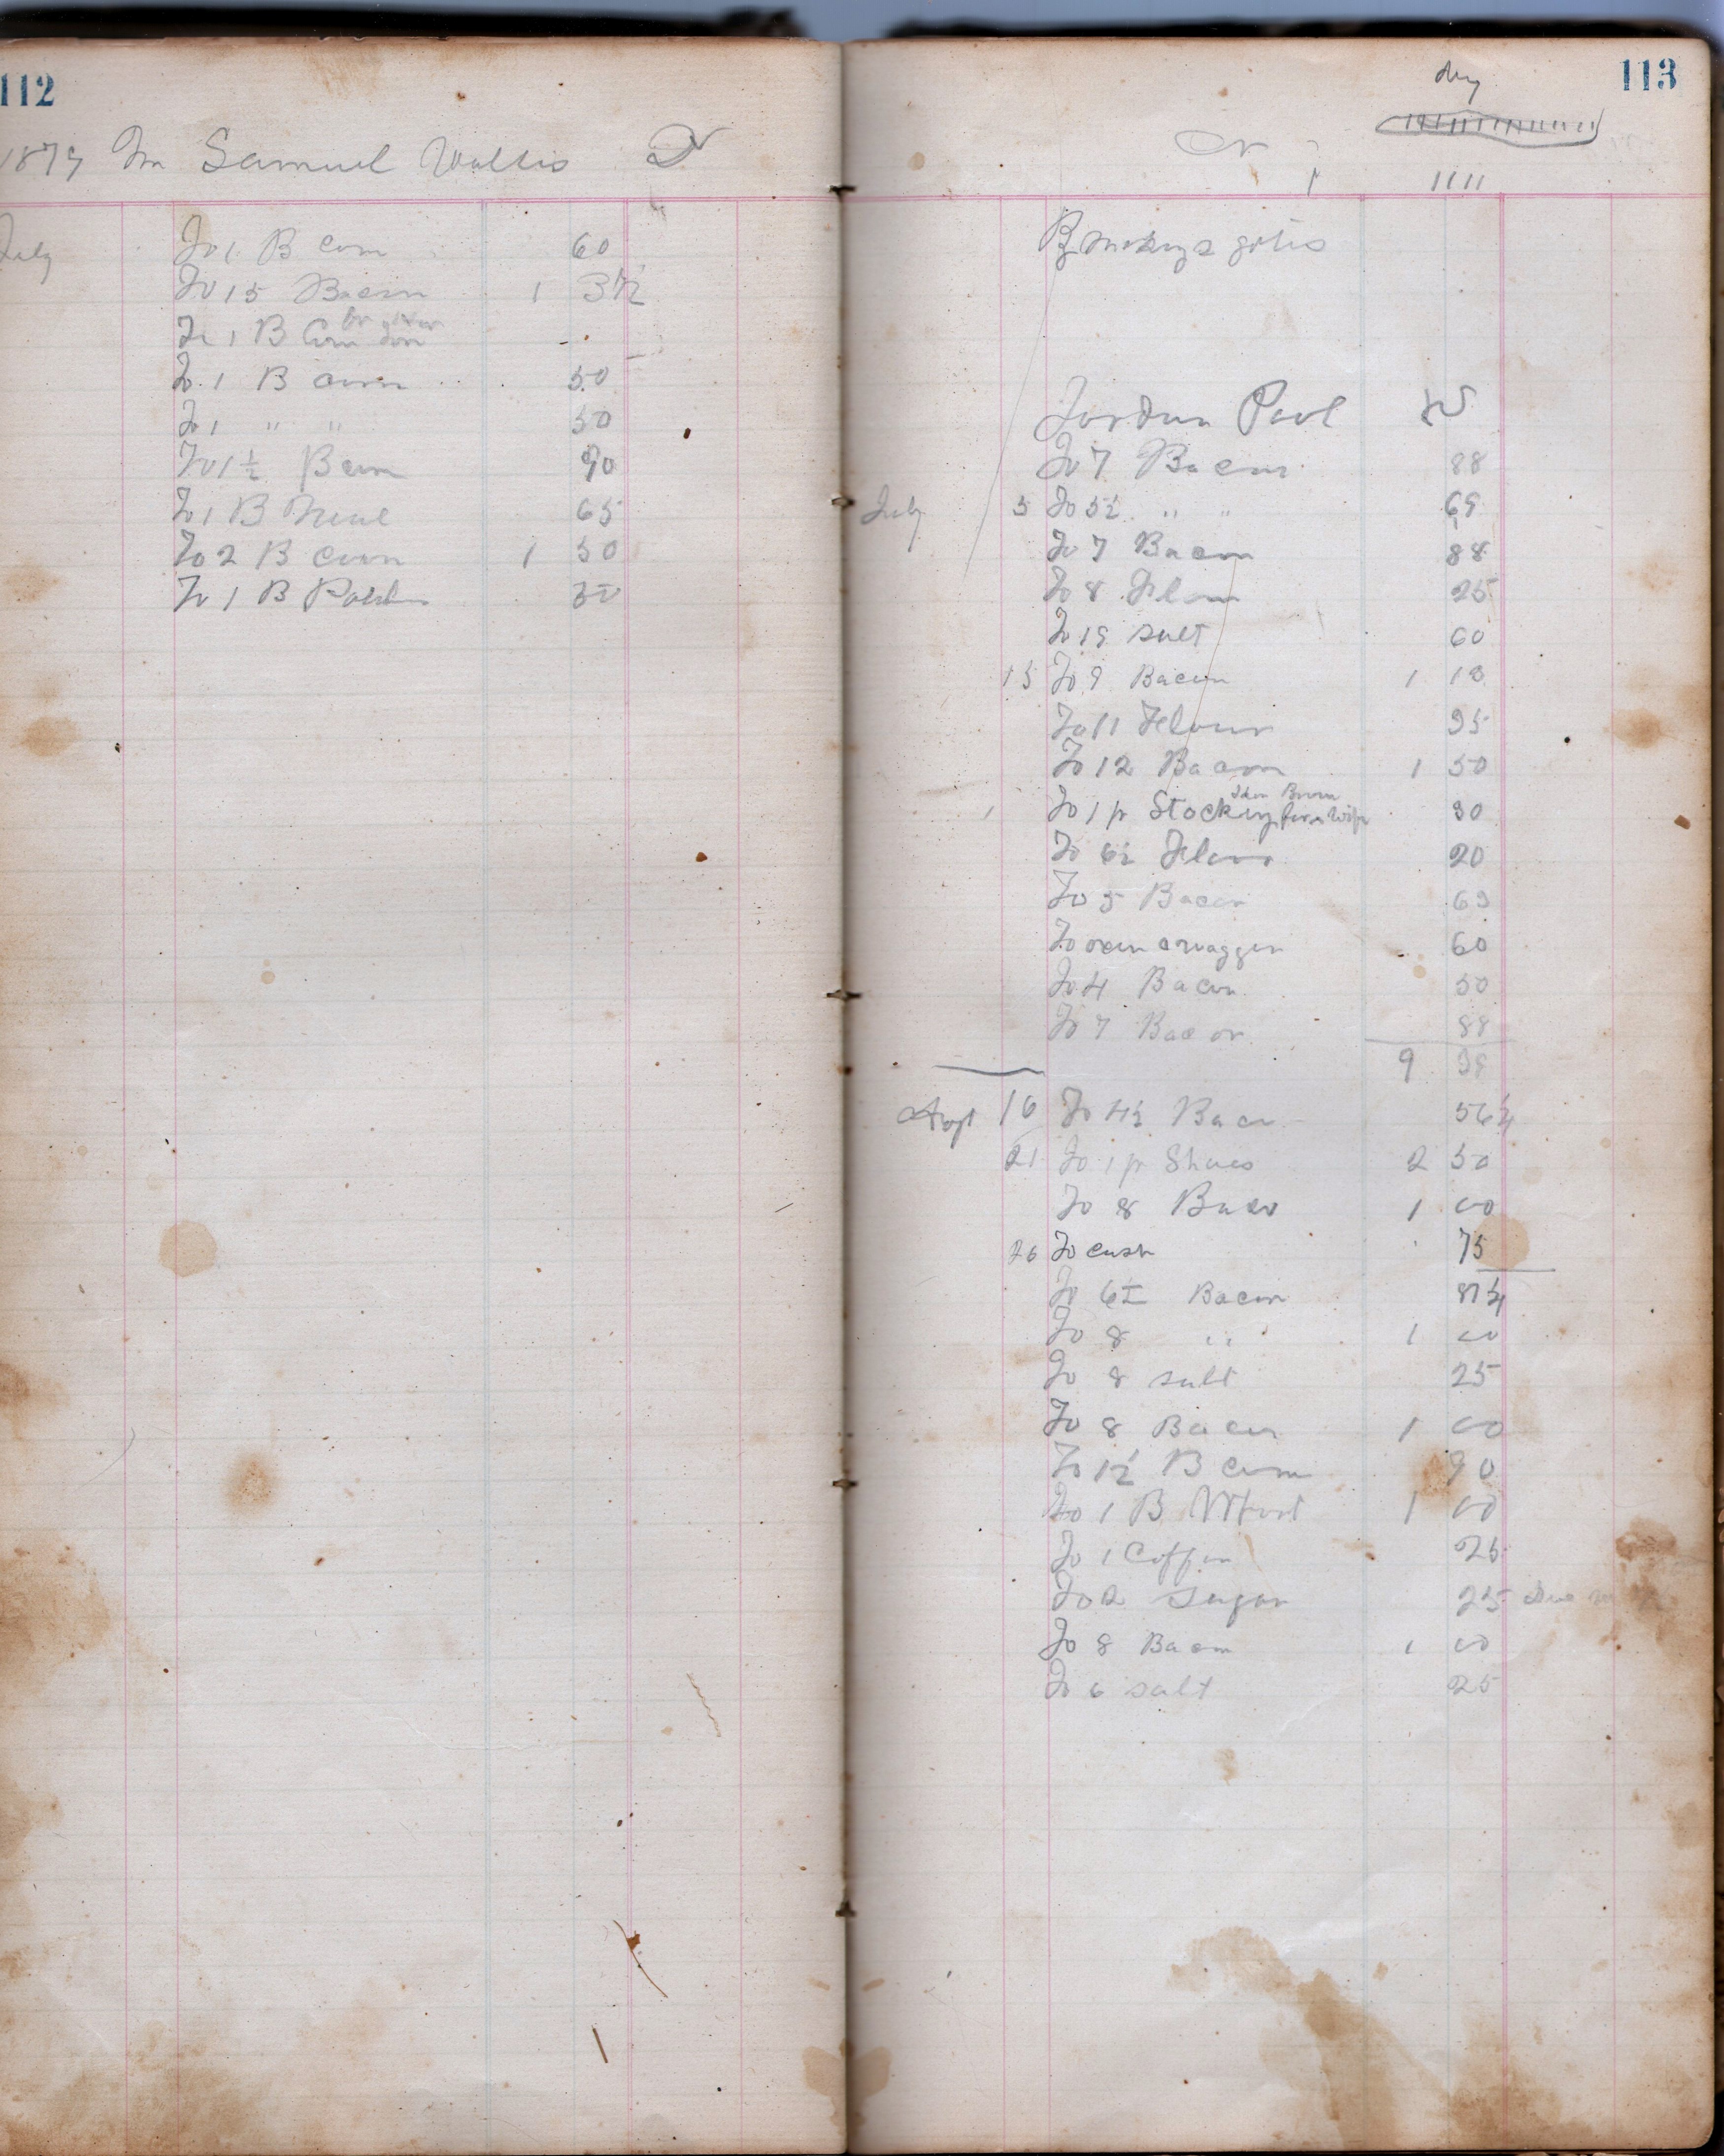 112
1879 Mr Samuel Wallis Dr
July To 1 B Corn 60
To 15 Bacon 1 31½
To 1 B Corn
To 1 B Corn 50
To 1 " " 50
To 1½ B Corn 90
To 1 B Meal 65
To 2 B Corn 1 50
To 1 B
113
Cr
1111
By
Jordan Pool Dr
To 7 Bacon 88
July 5 To 5½ " " 69
To 7 Bacon 88
To 8 Flour 25
To 19 salt 60
15 To 9 Bacon 1 13
To 11 Flour 35
To 12 Bacon 1 50
To 1 pr Stockings 30
To 6½ Flour 20
To 5 Bacon 63
To oxen & waggen 60
To 4 Bacon 50
To 7 Bacon 88
9 39
Aug 16 To 4½ Bacn 56¼
21 To 1 pr Shoes 2 50
To 8 Baco 1 00
26 To cash 75
To 6½ Bacon 81¼
To 8 " 1 00
To 8 salt 25
To 8 Bacon 1 00
To 1½ B Corn 90
To 1 B 1 00
To 1 Coffee 25
To 2 Sugar 25
To 8 Bacon 1 00
To 6 salt 25